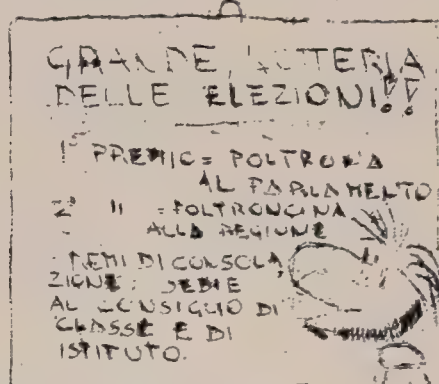 GRANDE LOTTERIA
DELLE ELEZIONI!!
1° PREMIO = POLTRONA
AL PARLAMENTO
2° " = POLTRONCINA
ALLA REGIONE
PREMI DI CONSOLA
ZIONE: SEDIE
AL CONSIGLIO DI
CLASSE E DI
ISTITUTO.